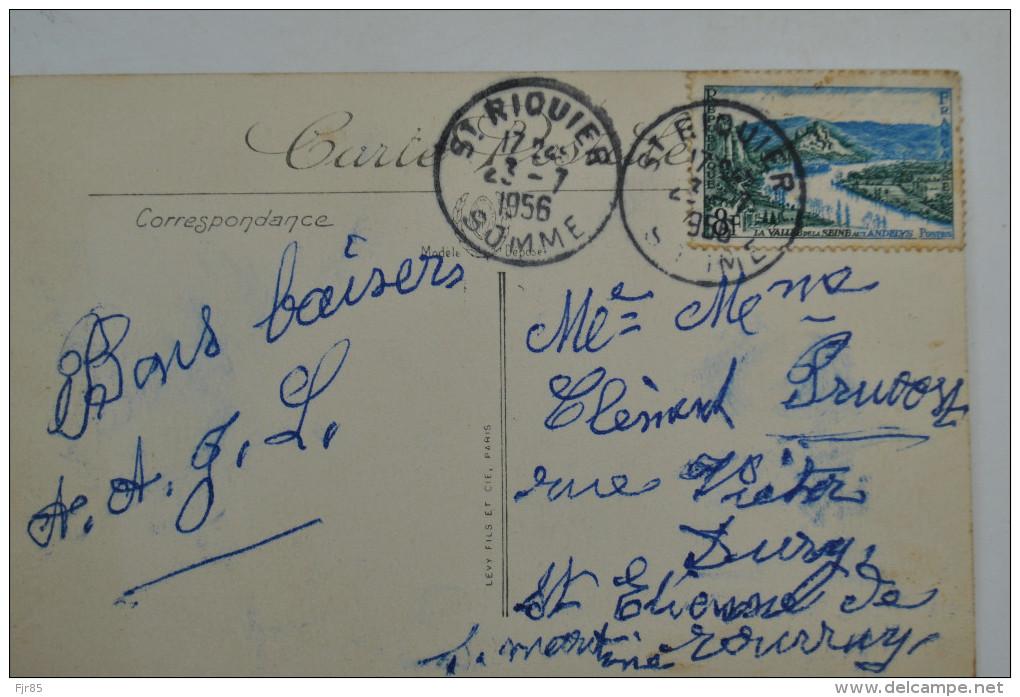 Carte Postale
Correspondance
Modèle Déposé
ST RIQUIER
17 245
23 - 7
1956
SOMME
ST RIQUIER
17 245
23 - 7
1956
SOMME
REPUBLIQUE FRANÇAISE
8F
LA VALLEE DE LA SEINE AUX ANDELYS POSTES
Bons baisers
A. A. J. L.
LEVY FILS ET CIE, PARIS
Mr Mme
Clément Pruvost
rue Victor
Duruy,
St Etienne de
Rouvray
S. maritime
Fjr85
www.delcampe.net